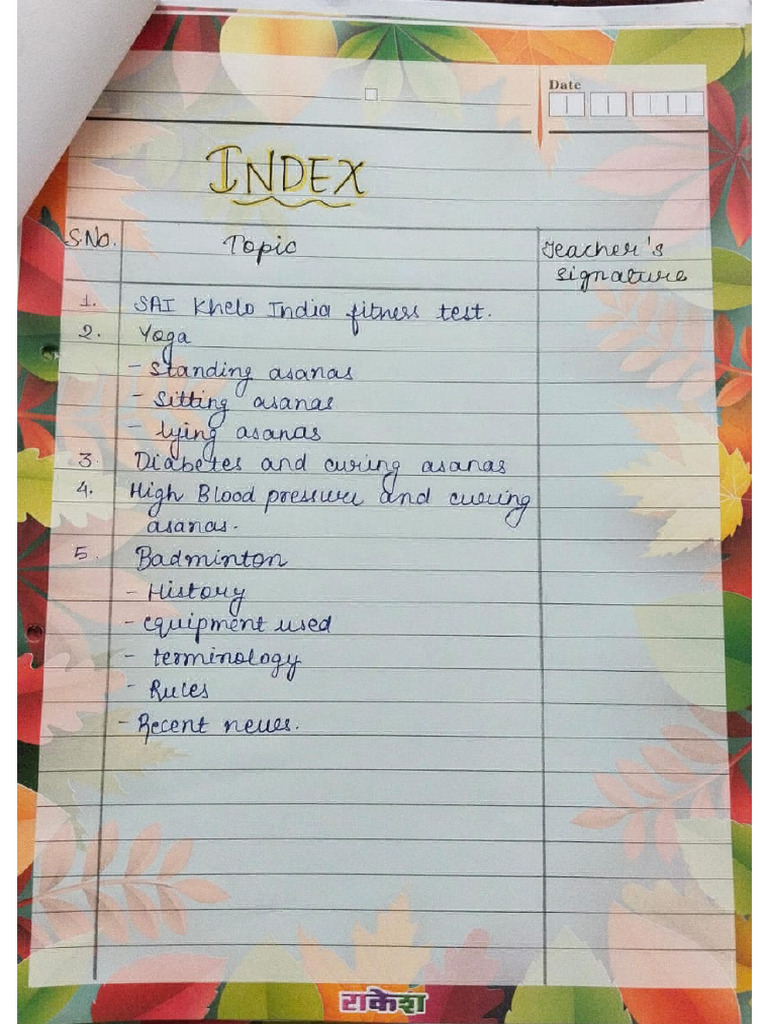 Date
INDEX
S.No. Topic Teacher's
signature
1. SAI Khelo India fitness test.
2. Yoga
- Standing asanas
- Sitting asanas
- lying asanas
3. Diabetes and curing asanas
4. High Blood pressure and curing
asanas.
5. Badminton
- History
- equipment used
- terminology
- Rules
- Recent news.
राकेश